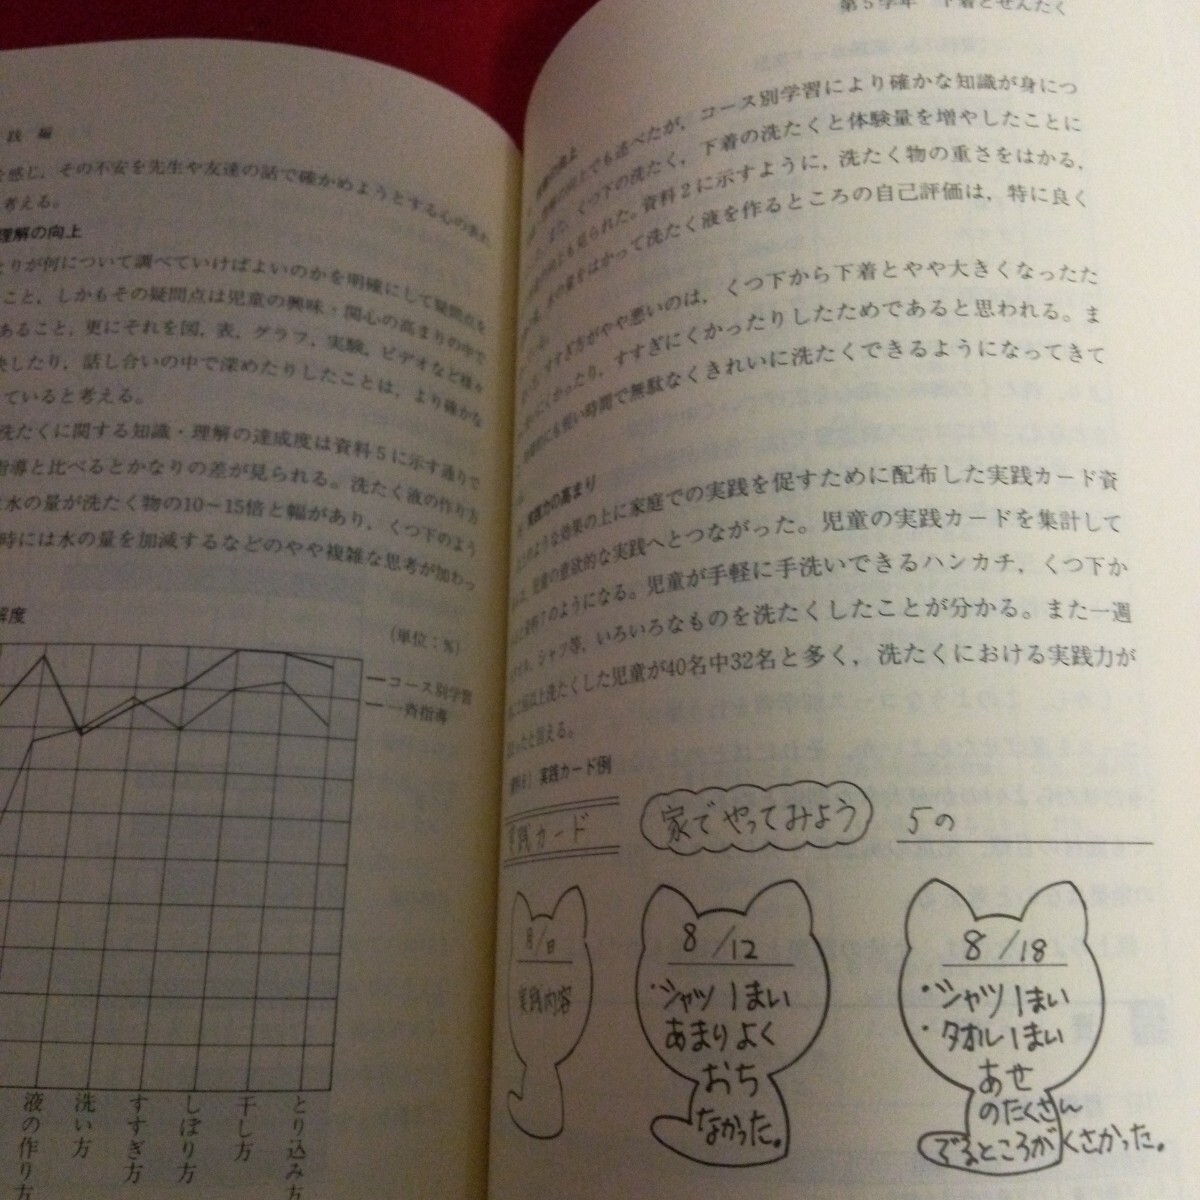 践編
感じ，その不安を先生や友達の話で確かめようとする心の表れ
考える。
理解の向上
とりが何について調べていけばよいのかを明確にして疑問点を
こと，しかもその疑問点は児童の興味・関心の高まりの中で
あること，更にそれを図，表，グラフ，実験，ビデオなど様々
決したり，話し合いの中で深めたりしたことは，より確かな
ていると考える。
洗たくに関する知識・理解の達成度は資料5に示す通りで
指導と比べるとかなりの差が見られる。洗たく液の作り方
は水の量が洗たく物の10〜15倍と幅があり，くつ下のよう
時には水の量を加減するなどのやや複雑な思考が加わっ
解度
(単位：%)
コース別学習
一斉指導
液の作り方
洗い方
すすぎ方
しぼり方
干し方
とり込み方
第5学年 下着とせんたく
の向上でも述べたが，コース別学習により確かな知識が身につ
また，くつ下の洗たく，下着の洗たくと体験量を増やしたことに
の向上も見られた。資料2に示すように，洗たく物の重さをはかる，
水の量をはかって洗たく液を作るところの自己評価は，特に良く
すすぎ方がやや悪いのは，くつ下から下着とやや大きくなったた
にくかったり，すすぎにくかったりしたためであると思われる。ま
にも短い時間で無駄なくきれいに洗たくできるようになってきて
実践力の高まり
のような効果の上に家庭での実践を促すために配布した実践カード資
児童の意欲的な実践へとつながった。児童の実践カードを集計して
資料7のようになる。児童が手軽に手洗いできるハンカチ，くつ下か
シャツ等，いろいろなものを洗たくしたことが分かる。また一週
以上洗たくした児童が40名中32名と多く，洗たくにおける実践力が
たと言える。
実践カード例
実践カード
家でやってみよう
5の
月/日
実践内容
8/12
・シャツ1まい
あまりよく
おち
なかった。
8/18
・シャツ1まい
・タオル1まい
あせ
のたくさん
でるところがくさかった。